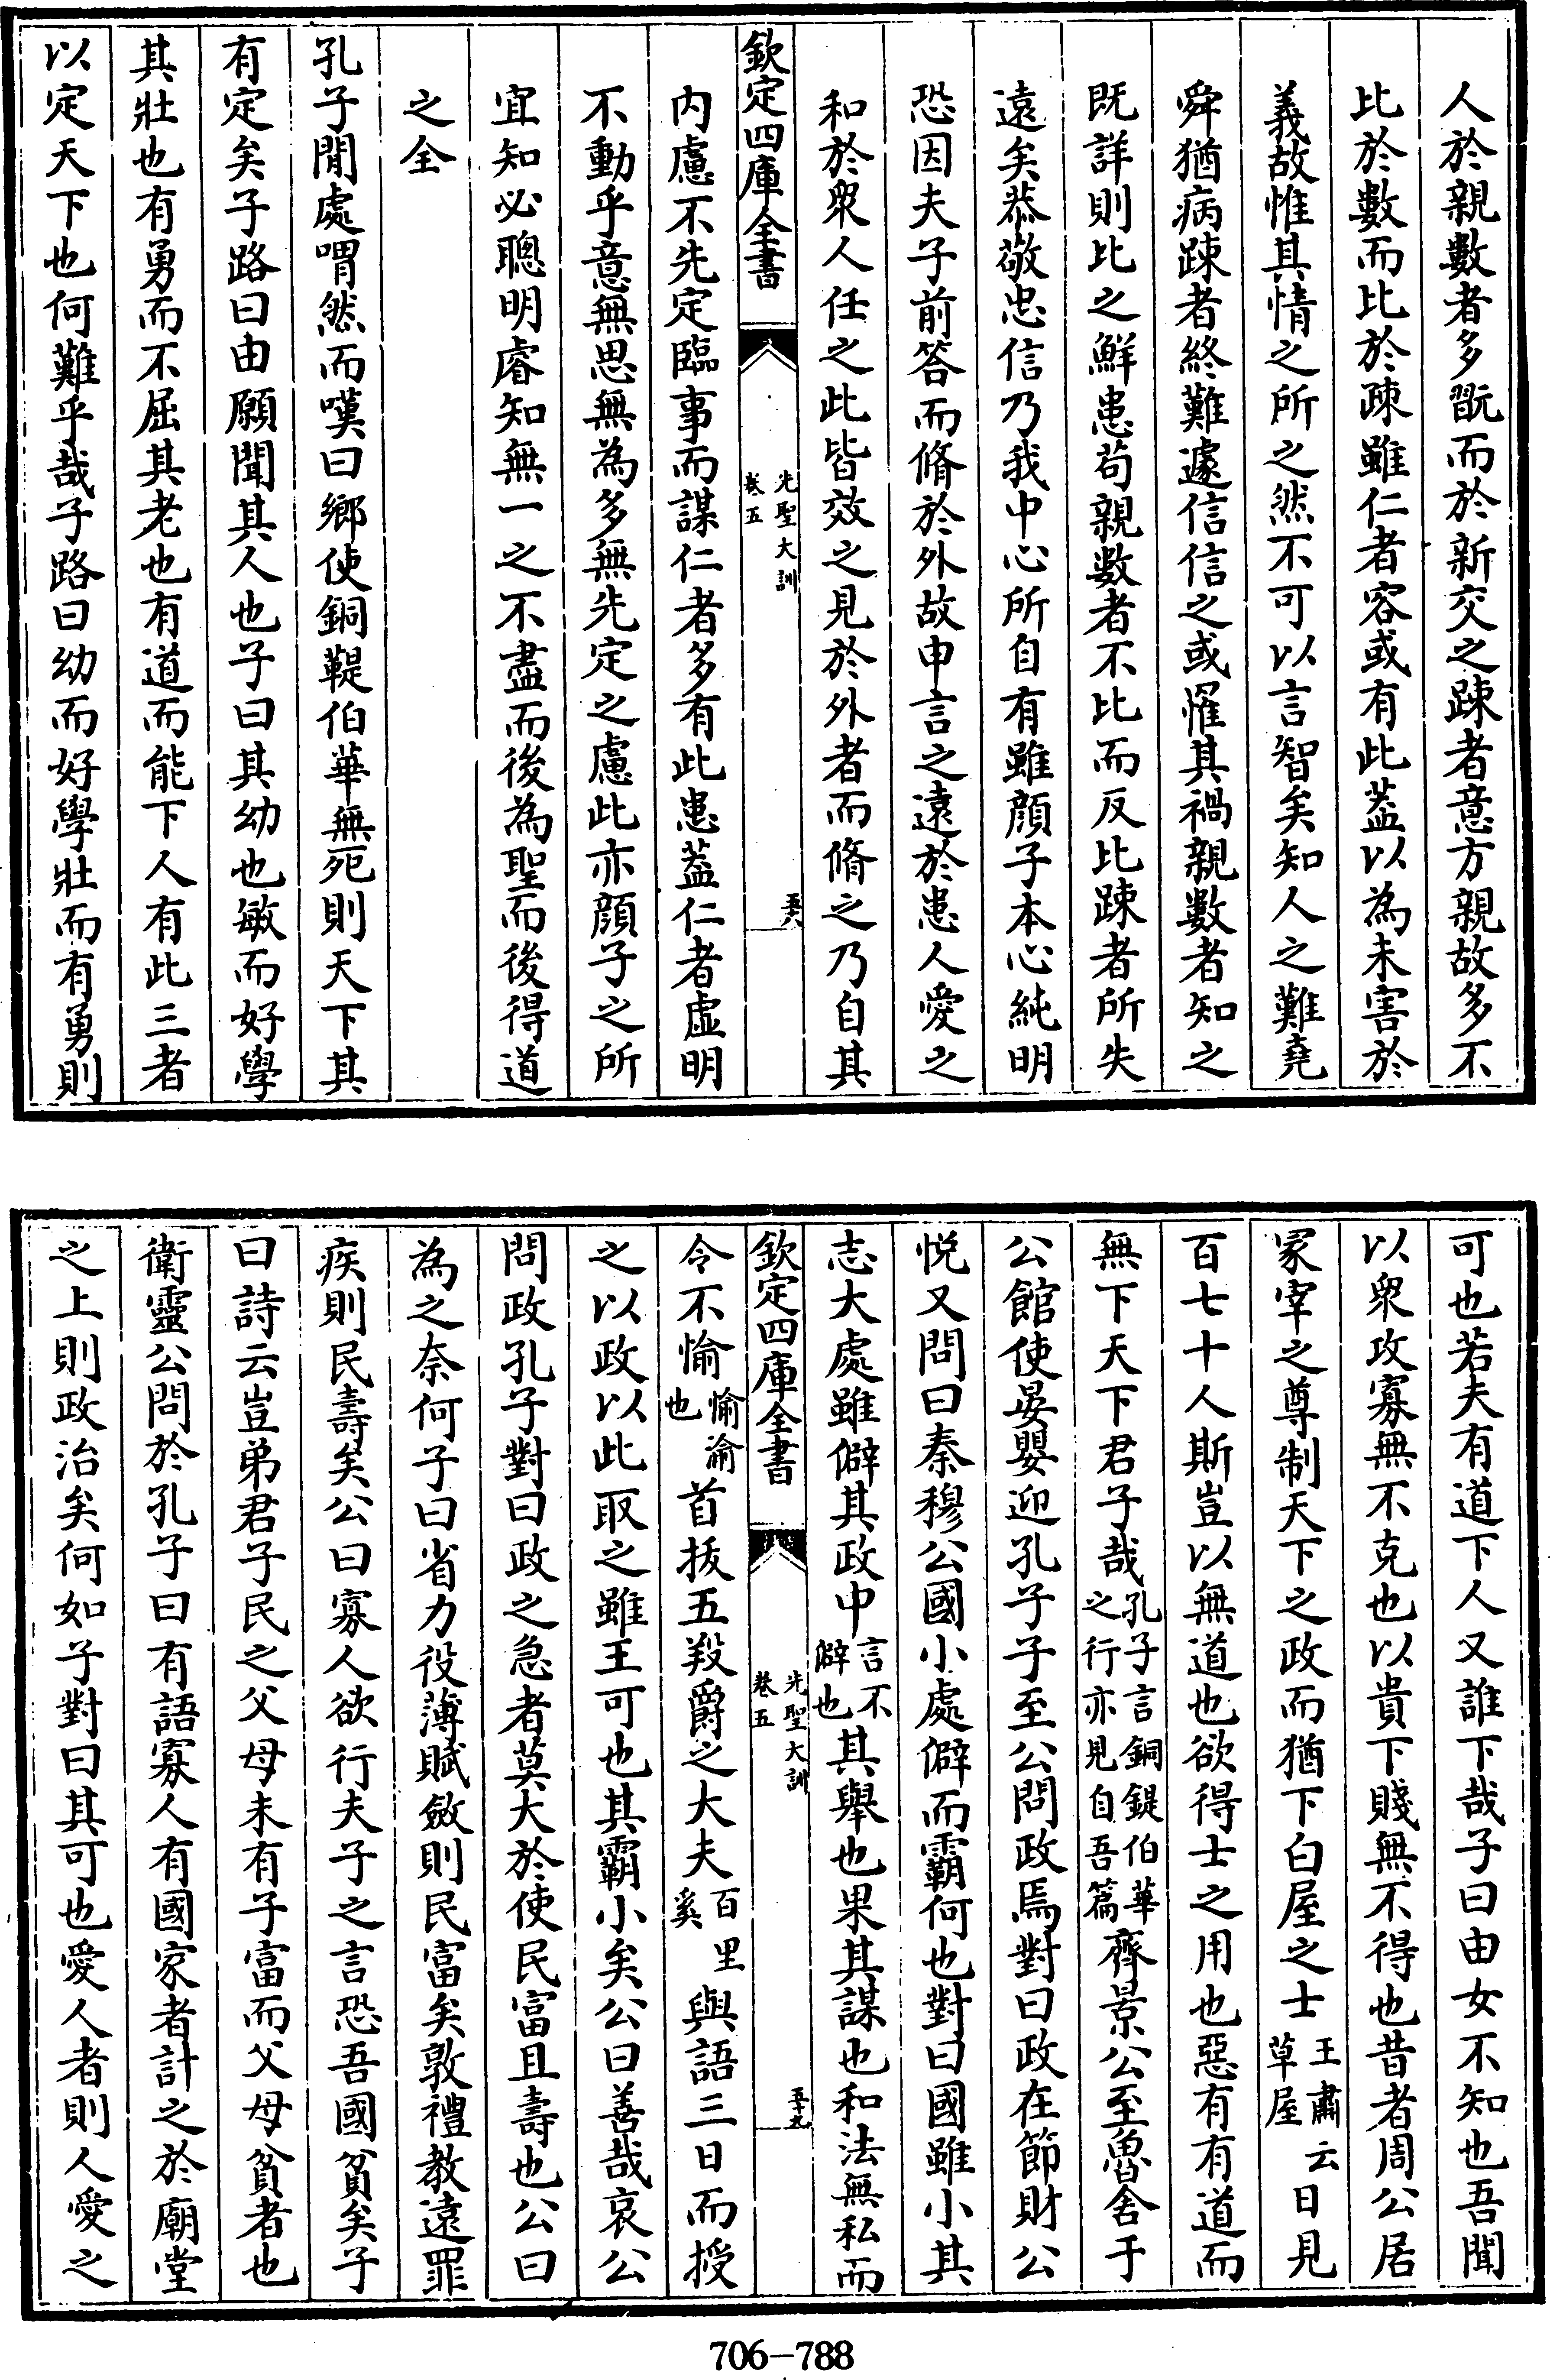 人於親數者多翫而於新交之疎者意方親故多不
比於數而比於疎雖仁者容或有此蓋以為未害於
義故惟其情之所之然不可以言智矣知人之難堯
舜猶病疎者終難遽信信之或罹其禍親數者知之
既詳則比之鮮患苟親數者不比而反比疎者所失
遠矣恭敬忠信乃我中心所自有雖顔子本心純明
恐因夫子前答而脩於外故申言之遠於患人愛之
和於衆人任之此皆效之見於外者而脩之乃自其
欽定四庫全書
先聖大訓
卷五
五十八
内慮不先定臨事而謀仁者多有此患蓋仁者虛明
不動乎意無思無為多無先定之慮此亦顔子之所
宜知必聰明睿知無一之不盡而後為聖而後得道
之全
孔子閒處喟然而嘆曰鄉使銅鞮伯華無死則天下其
有定矣子路曰由願聞其人也子曰其幼也敏而好學
其壯也有勇而不屈其老也有道而能下人有此三者
以定天下也何難乎哉子路曰幼而好學壯而有勇則
可也若夫有道下人又誰下哉子曰由女不知也吾聞
以衆攻寡無不克也以貴下賤無不得也昔者周公居
冡宰之尊制天下之政而猶下白屋之士王肅云草屋日見
百七十人斯豈以無道也欲得士之用也惡有有道而
無下天下君子哉孔子言銅鍉伯華之行亦見自吾篇齊景公至魯舍于
公館使晏嬰迎孔子子至公問政焉對曰政在節財公
悦又問曰秦穆公國小處僻而霸何也對曰國雖小其
志大處雖僻其政中言不僻也其舉也果其謀也和法無私而
欽定四庫全書
先聖大訓
卷五
五十九
令不愉愉渝也首拔五羖爵之大夫百里奚與語三日而授
之以政以此取之雖王可也其霸小矣公曰善哉哀公
問政孔子對曰政之急者莫大於使民富且壽也公曰
為之奈何子曰省力役薄賦斂則民富矣敦禮教遠罪
疾則民壽矣公曰寡人欲行夫子之言恐吾國貧矣子
曰詩云豈弟君子民之父母未有子富而父母貧者也
衛靈公問於孔子曰有語寡人有國家者計之於廟堂
之上則政治矣何如子對曰其可也愛人者則人愛之
706-788